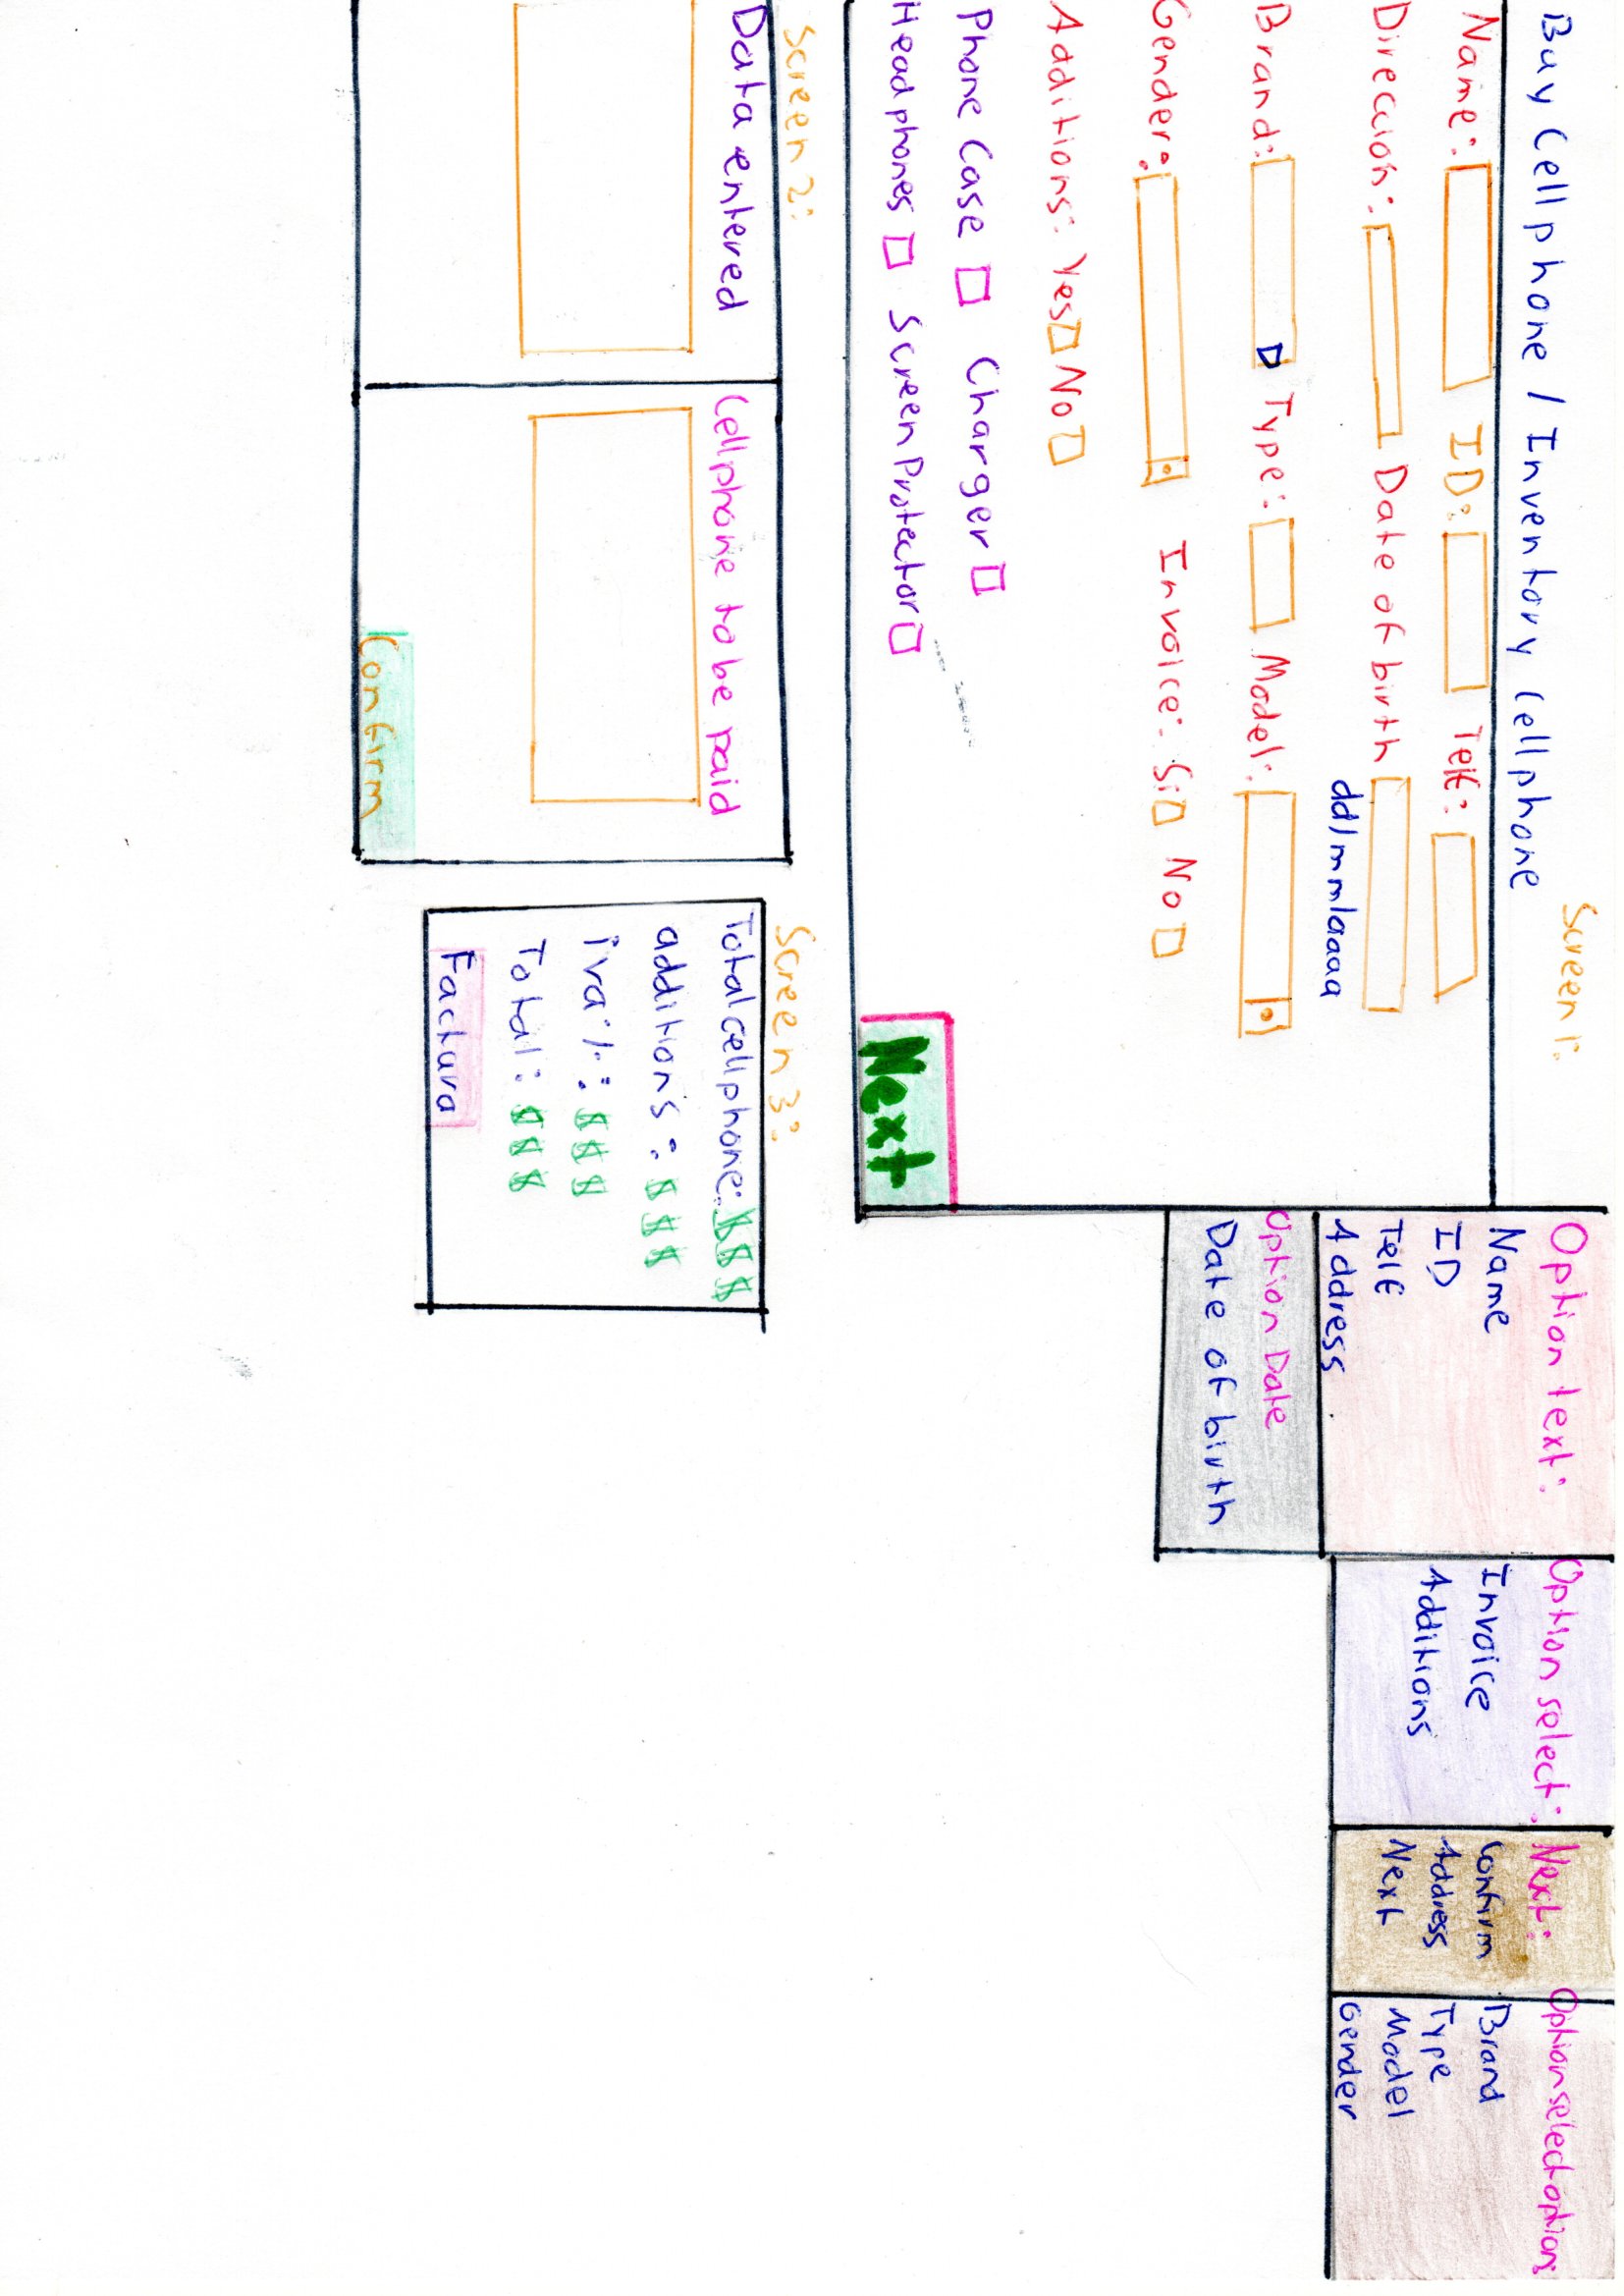 Screen 1:
Buy Cellphone / Inventory cellphone
Name: ID: Telf:
Direccion: Date of birth
dd/mm/aaaa
Brand: Type: Model:
Gender: Invoice: Si No
Additions: Yes No
Phone Case Charger
Headphones Screen Protector
Next
Option text:
Name
ID
Telf
Address
Option Date
Date of birth
Option select:
Invoice
Additions
Next:
Confirm
Address
Next
Option select options
Brand
Type
Model
Gender
Screen 2:
Data entered
Cellphone to be paid
Confirm
Screen 3:
Total cellphone: $$$
additions: $$$
iva %: $$$
Total: $$$
Factura